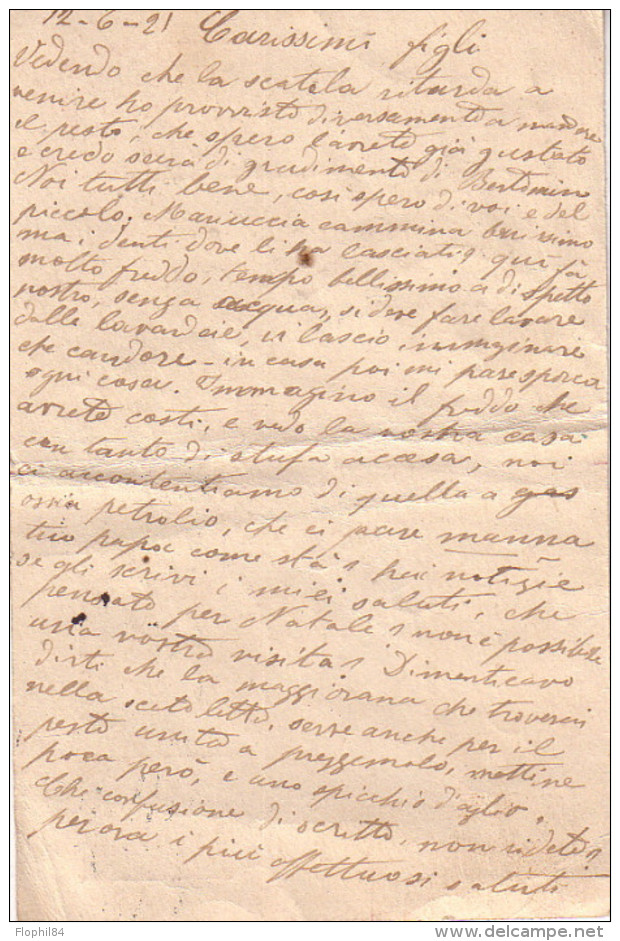 12-6-21 Carissimi figli
Vedendo che la scatola ritarda a
venire ho provvisto diversamente a mandare
il pesto, che spero l'avrete già gustato
e credo sarà di gradimento di
Noi tutti bene, così spero di voi e del
piccolo. Mariuccia cammina benissimo
ma i denti dove li ha lasciati? qui fa
molto freddo, tempo bellissimo a dispetto
nostro, senza acqua, si deve fare lavare
dalle lavandaie, vi lascio immaginare
che candore - in casa poi mi pare sporca
ogni cosa. Immagino il freddo che
avrete costì, e vedo la vostra casa
con tanto di stufa accesa, noi
ci accontentiamo di quella a gas
ossia petrolio, che ci pare manna
tuo papà come sta? hai notizie
se gli scrivi i miei saluti, che
pensato per Natale? non è possibile
una vostra visita? Dimenticavo
dirti che la maggiorana che troverai
nella scatoletta, serve anche per il
pesto unita a prezzemolo, mettine
poca però, e uno spicchio d'aglio.
Che confusione di scritto, non ridete?
per ora i più affettuosi saluti
Flophil84
www.delcampe.net